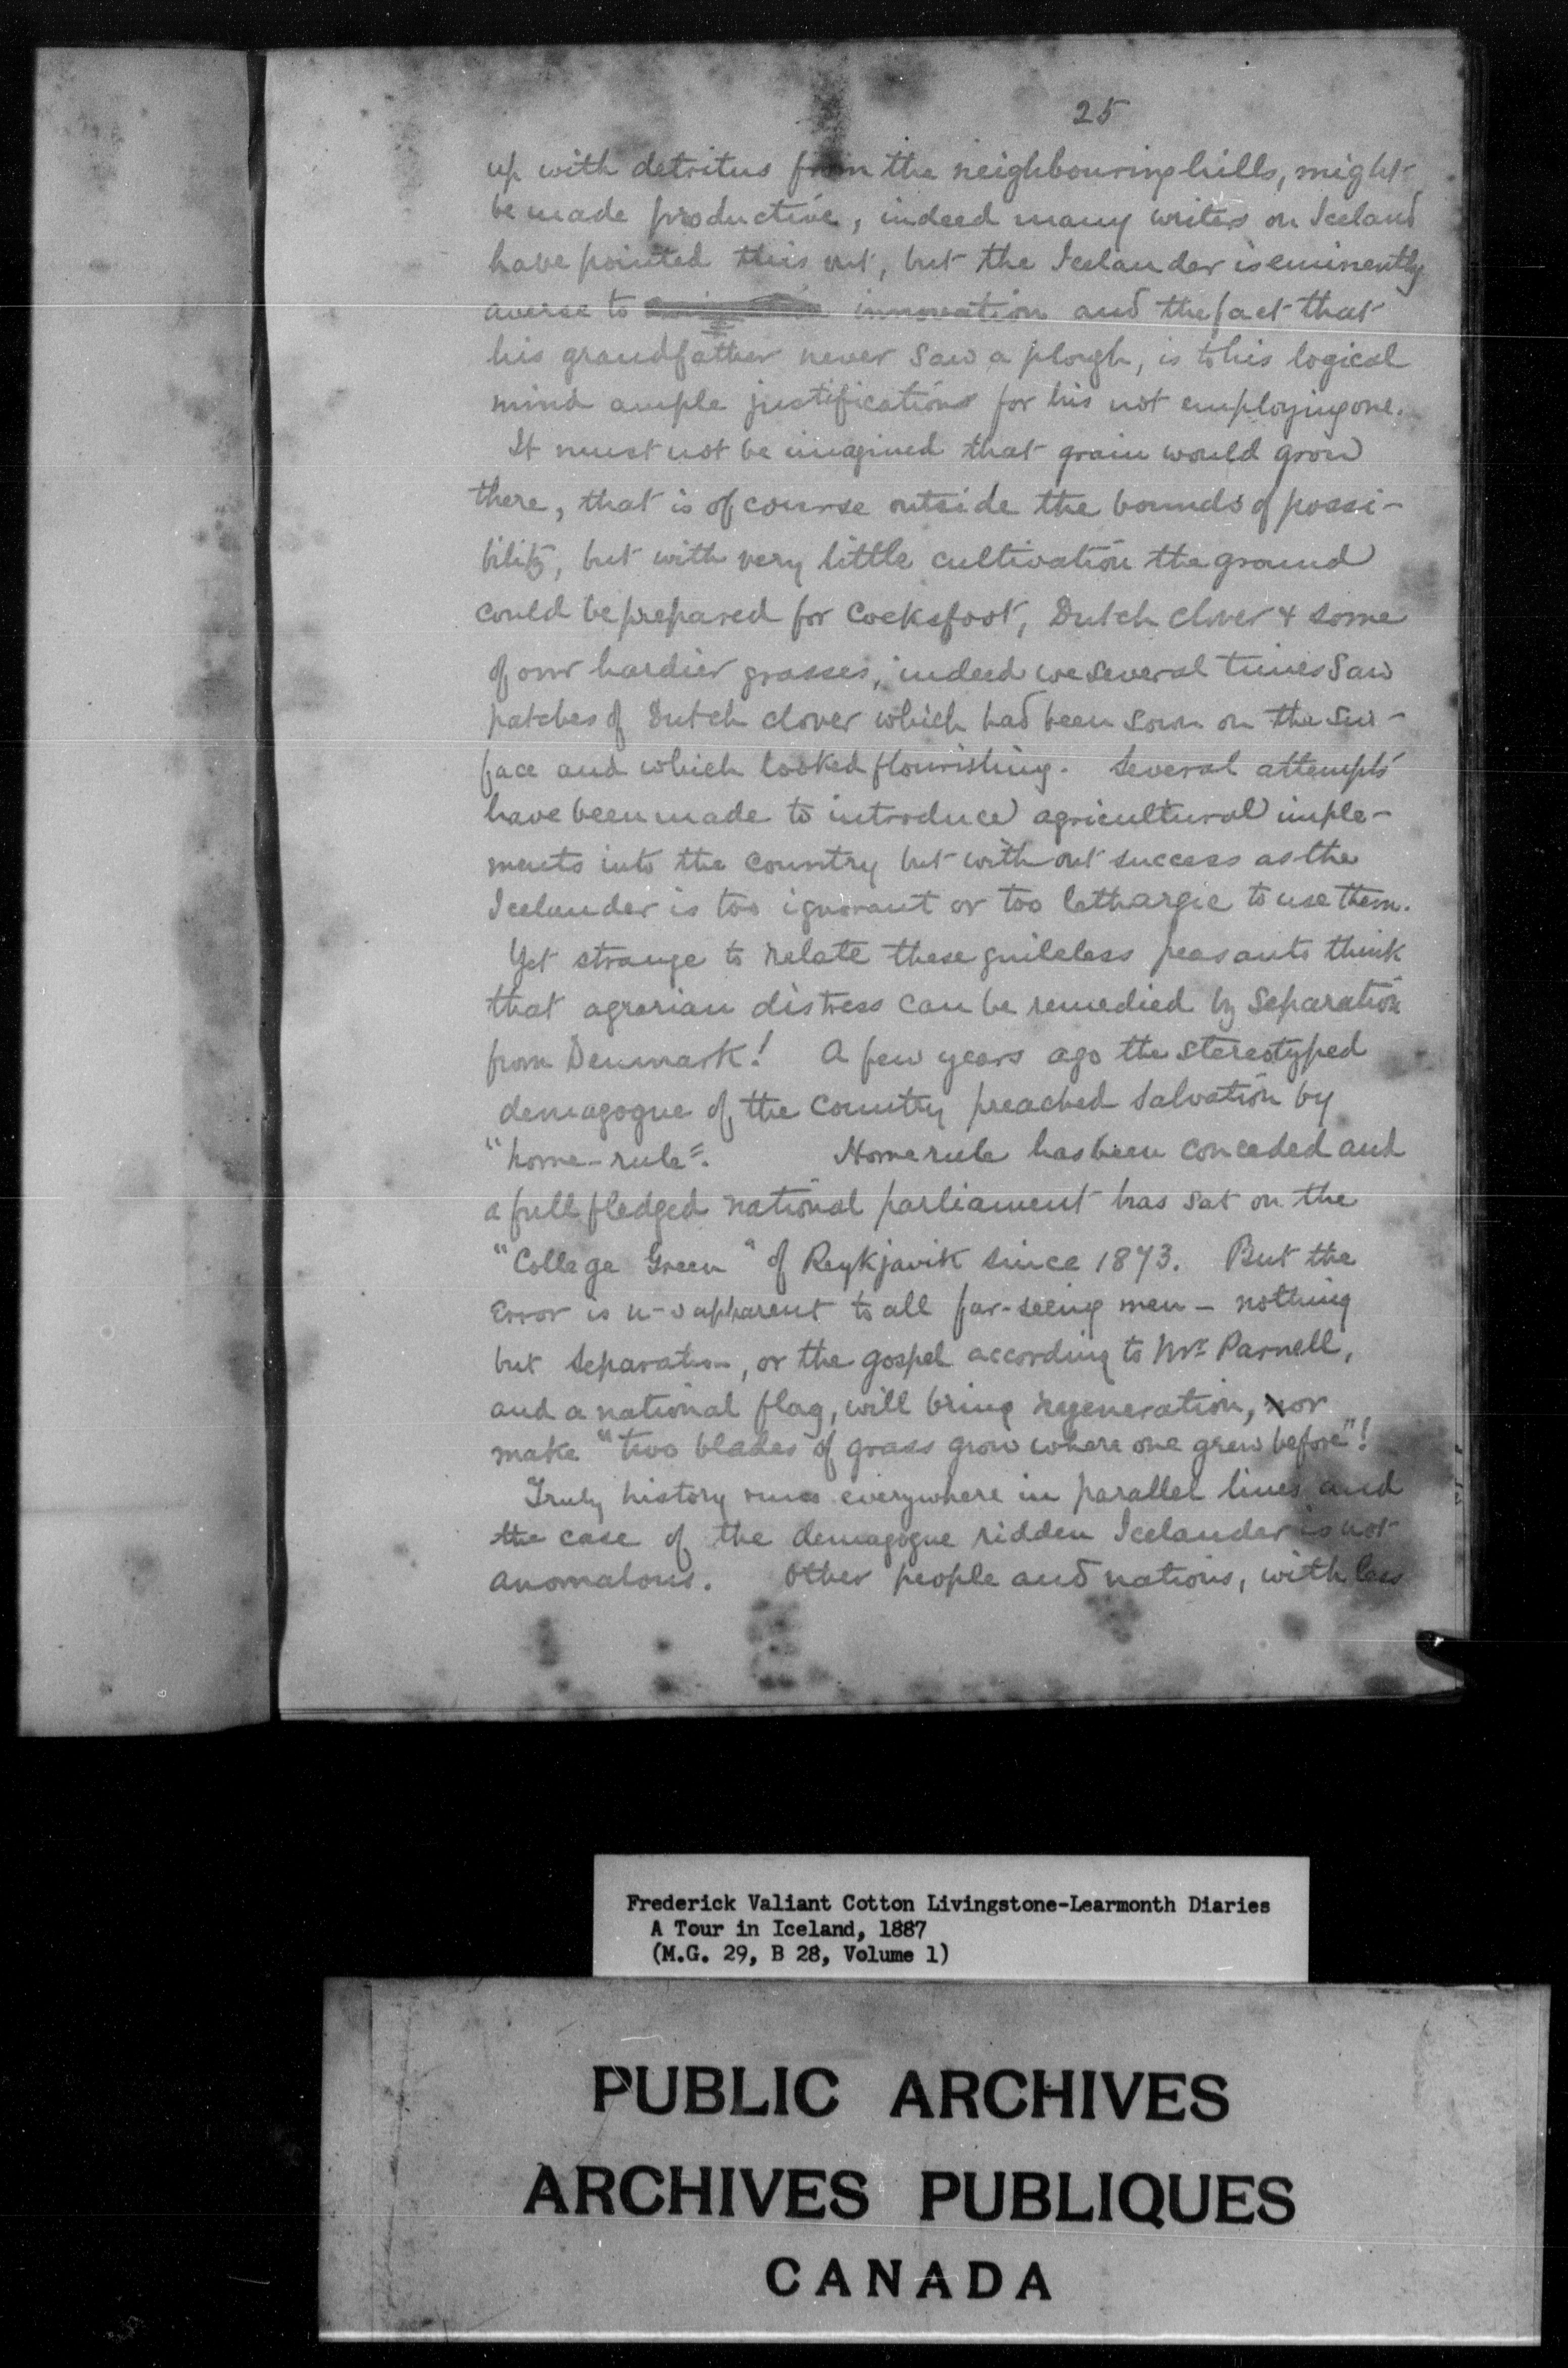 25
up with detritus from the neighbouring hills, might
be made productive, indeed many writers on Iceland
have pointed this out, but the Icelander is eminently
averse to innovation and the fact that
his grandfather never saw a plough, is to his logical
mind ample justification for his not employing one.
It must not be imagined that grain would grow
there, that is of course outside the bounds of possi-
bility, but with very little cultivation the ground
could be prepared for Cocksfoot, Dutch clover & some
of our hardier grasses, indeed we several times saw
patches of Dutch clover which had been sown on the sur-
face and which looked flourishing. Several attempts
have been made to introduce agricultural imple-
ments into the country but without success as the
Icelander is too ignorant or too lethargic to use them.
Yet strange to relate these guileless peasants think
that agrarian distress can be remedied by Separation
from Denmark! A few years ago the stereotyped
demagogue of the country preached salvation by
"home-rule". Home rule has been conceded and
a full fledged national parliament has sat on the
"College Green" of Reykjavik since 1873. But the
Error is apparent to all far-seeing men - nothing
but Separation, or the gospel according to Mr. Parnell,
and a national flag, will bring regeneration, or
make "two blades of grass grow where one grew before"!
Truly history runs everywhere in parallel lines and
the case of the demagogue ridden Icelander is not
anomalous. Other people and nations, with less
Frederick Valiant Cotton Livingstone-Learmonth Diaries
A Tour in Iceland, 1887
(M.G. 29, B 28, Volume 1)
PUBLIC ARCHIVES
ARCHIVES PUBLIQUES
CANADA